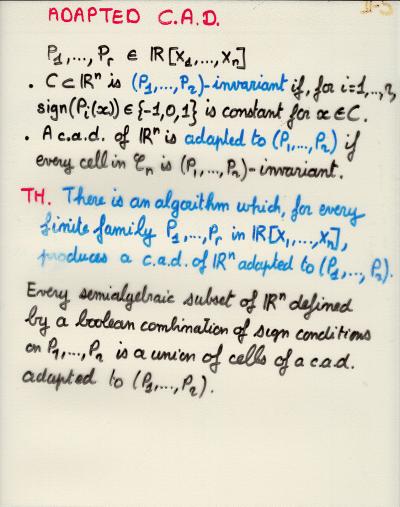 II-5
ADAPTED C.A.D.
P₁,...,Pᵣ ∈ ℝ[X₁,...,Xₙ]
• C⊂ℝⁿ is (P₁,...,Pᵣ)-invariant if, for i=1,...,r,
sign(Pᵢ(x))∈{-1,0,1} is constant for x∈C.
• A c.a.d. of ℝⁿ is adapted to (P₁,...,Pᵣ) if
every cell in 𝒞ₙ is (P₁,...,Pᵣ)-invariant.
TH. There is an algorithm which, for every
finite family P₁,...,Pᵣ in ℝ[X₁,...,Xₙ],
produces a c.a.d. of ℝⁿ adapted to (P₁,...,Pᵣ).
Every semialgebraic subset of ℝⁿ defined
by a boolean combination of sign conditions
on P₁,...,Pᵣ is a union of cells of a c.a.d.
adapted to (P₁,...,Pᵣ).